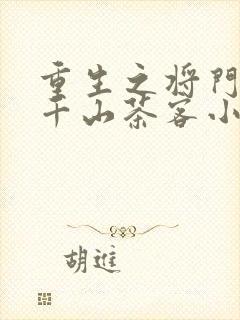 重生之将門
千山茶客小
胡進